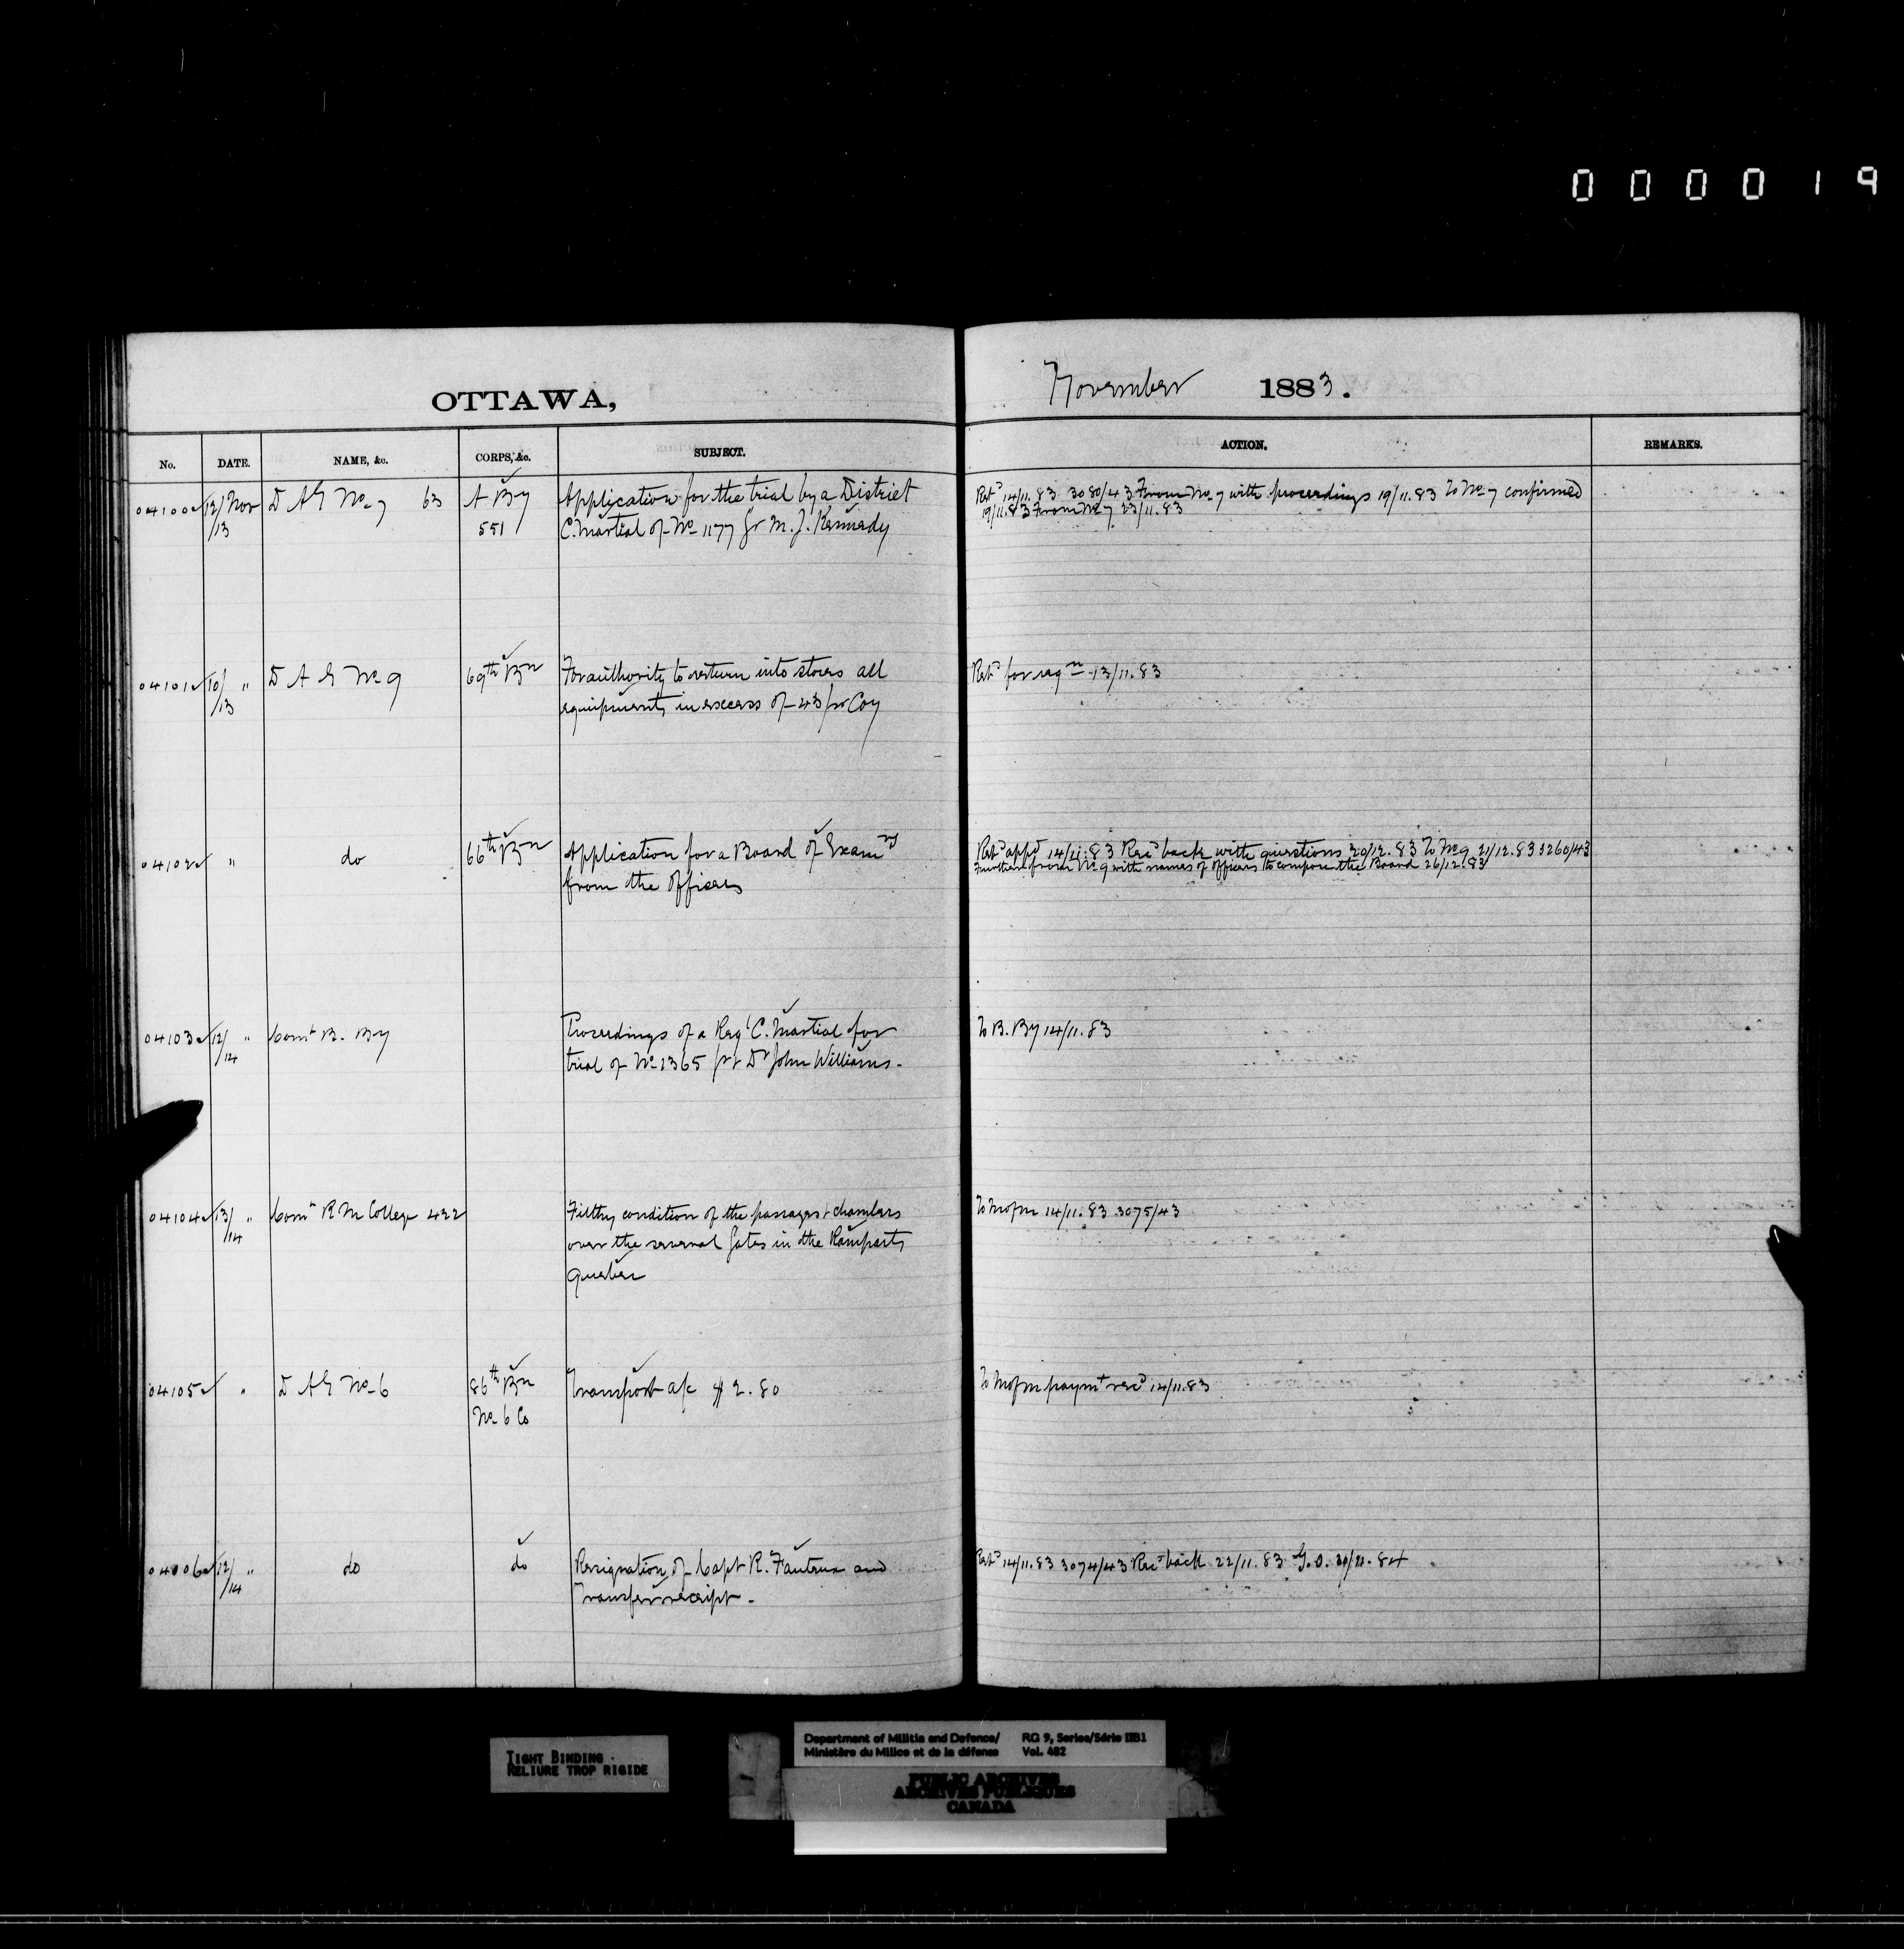 0 0 0 0 1 9
OTTAWA,
November 1883.
No. DATE. NAME, &c. CORPS, &c. SUBJECT. ACTION. REMARKS.
04100 12/13 Nov D A G No 7 63 A By 551
Application for the trial by a District
C. Martial of No 1177 Gr M. J. Kennedy
Retd 14/11.83 3080/43 From No 7 with proceedings 19/11.83 To No 7 confirmed
19/11.83 From No 7 23/11.83
04101 10/13 " D A G No 9 69th Bn
For authority to return into stores all
equipments in excess of 43 pr Coy
Retd for reqn 13/11.83
04102 " do 66th Bn
Application for a Board of Examrs
from the officers
Retd appd 14/11.83 Recd back with questions 20/12.83 To No 9 21/12.83 3260/43
Further from No 9 with names of officers to compose the Board 26/12.83
04103 12/14 " Comt B. By
Proceedings of a Regl C. Martial for
trial of No 1365 Dr John Williams.
To B. By 14/11.83
04104 13/14 " Comt R M College 422
Filthy condition of the passages & chambers
over the several Gates in the Ramparts
Quebec
To M of M 14/11.83 3075/43
04105 " D A G No 6 86th Bn
No 6 Co
Transport a/c $ 2.80
To M of M paymt recd 14/11.83
04106 12/14 " do do
Resignation of Capt R. Fauteux and
Transfer receipt.
Retd 14/11.83 3074/43 Recd back 22/11.83 G.O.
TIGHT BINDING
RELIURE TROP RIGIDE
Department of Militia and Defence/
Ministère du Milice et de la défense
RG 9, Series/Série IIB1
Vol. 482
PUBLIC ARCHIVES
ARCHIVES PUBLIQUES
CANADA